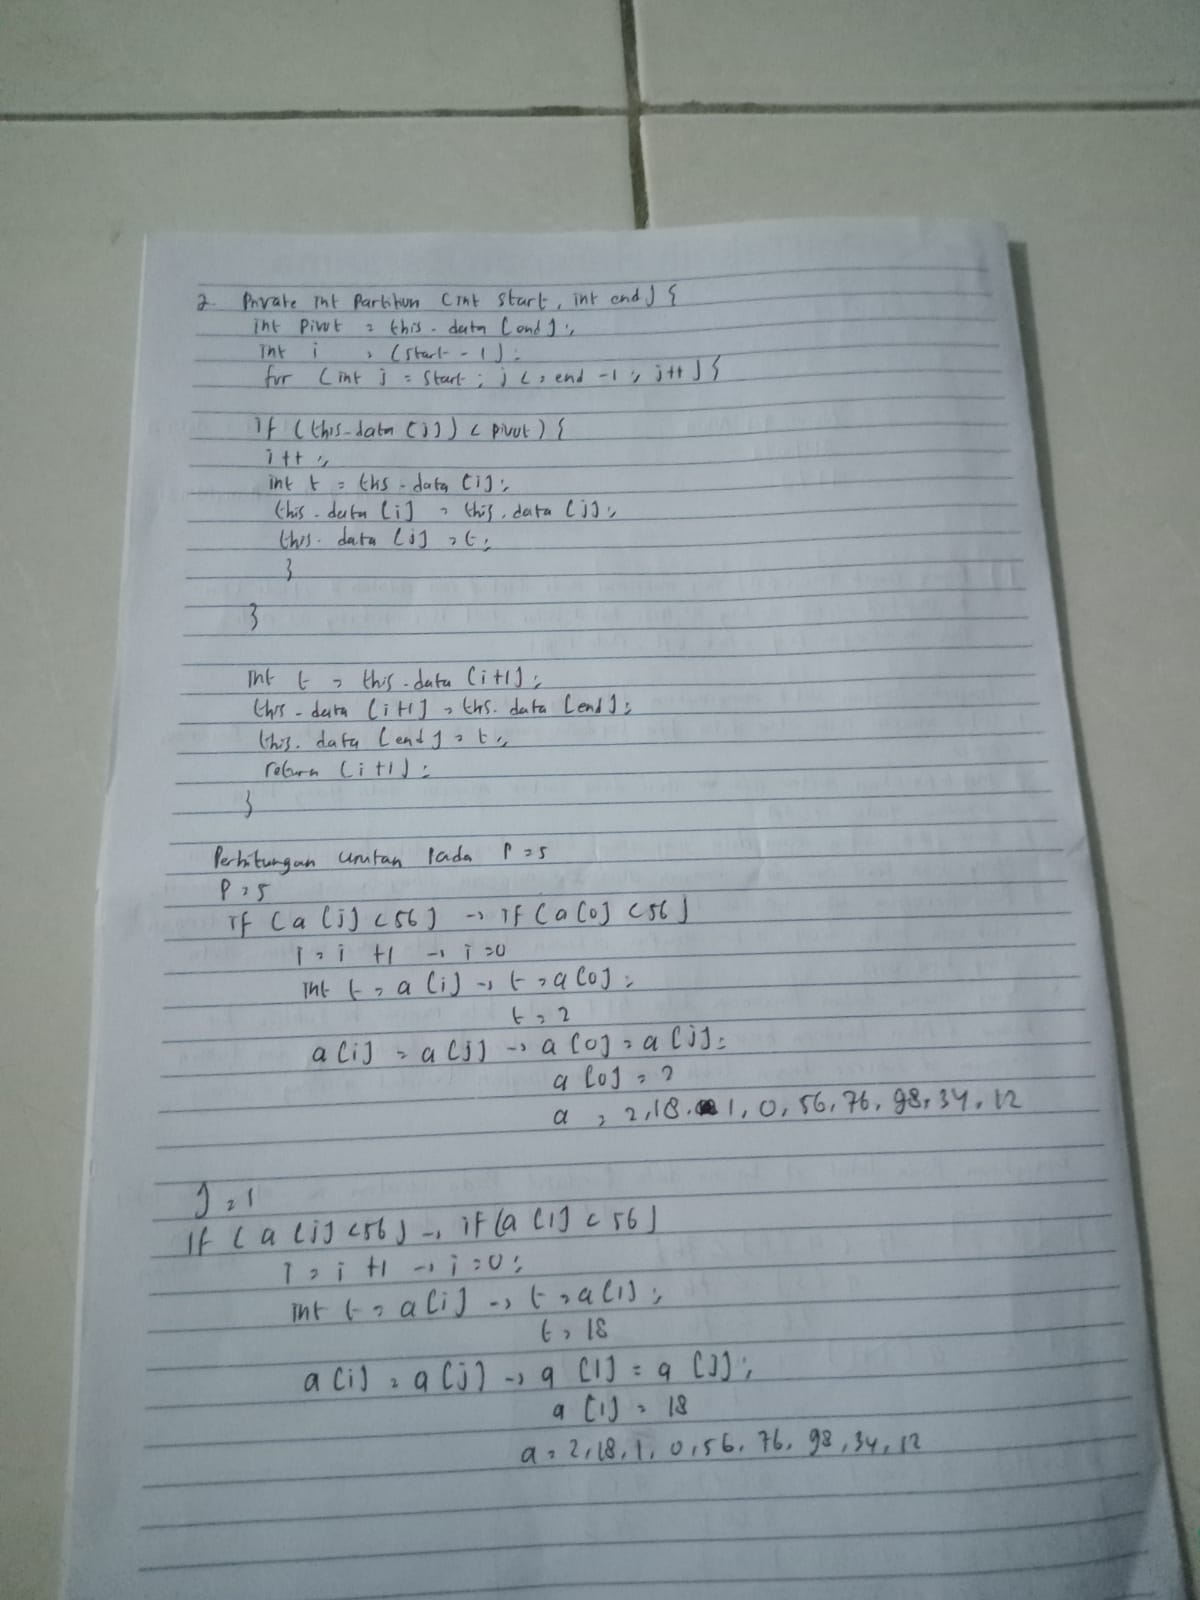 2. Private int Partition (int start, int end) {
int Pivot = this.data [end];
int i = (start - 1);
for (int j = start; j <= end - 1; j++) {
if (this.data [j]) < pivot) {
i++;
int t = ths.data [i];
this.data [i] = this.data [j];
this.data [j] = t;
}
}
int t = this.data [i+1];
this.data [i+1] = ths.data [end];
this.data [end] = t;
return (i+1);
}
Perhitungan Urutan Pada P=5
P=5
if (a [j] < 56) → if (a [0] < 56)
i = i +1 → i =0
int t = a [i] → t = a [0];
t = 2
a [i] = a [j] → a [0] = a [j];
a [0] = 2
a = 2, 18, 1, 0, 56, 76, 98, 34, 12
J = 1
if (a [j] < 56) → if (a [1] < 56)
i = i +1 → i =0;
int t = a [i] → t = a [1];
t = 18
a [i] = a [j] → a [1] = a [J];
a [1] = 18
a = 2, 18, 1, 0, 56, 76, 98, 34, 12